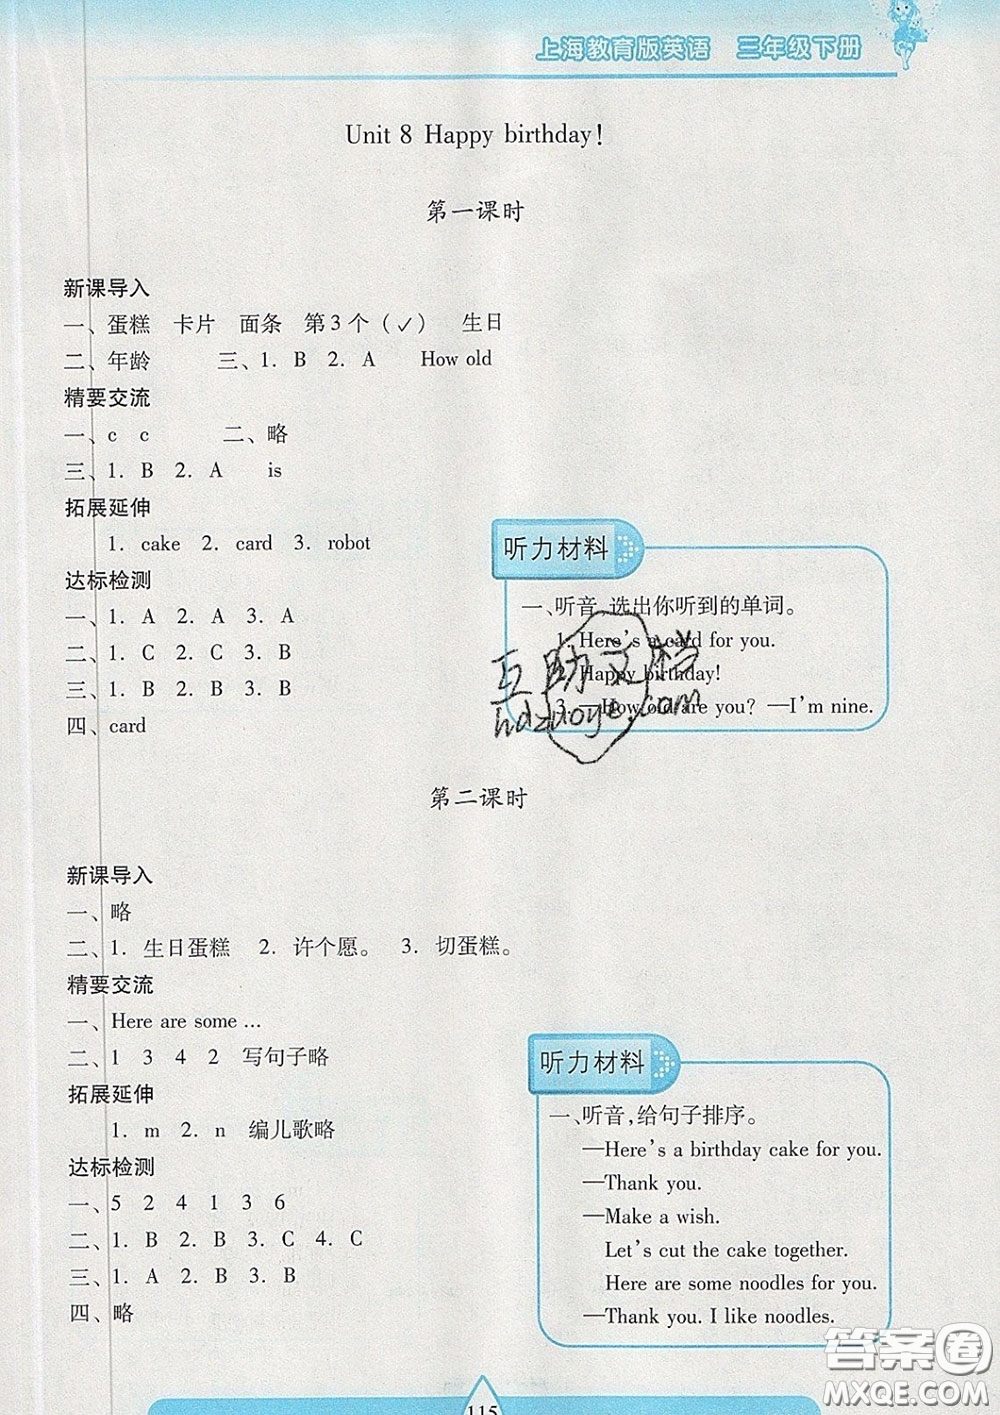 上海教育版英语 三年级下册
Unit 8 Happy birthday!
第一课时
新课导入
一、蛋糕 卡片 面条 第3个(✓) 生日
二、年龄 三、1. B 2. A How old
精要交流
一、c c 二、略
三、1. B 2. A is
拓展延伸
1. cake 2. card 3. robot
达标检测
一、1. A 2. A 3. A
二、1. C 2. C 3. B
三、1. B 2. B 3. B
四、card
听力材料
一、听音,选出你听到的单词。
1. Here's a card for you.
Happy birthday!
3. —How old are you? —I'm nine.
互助文档
hdzuoye.com
第二课时
新课导入
一、略
二、1. 生日蛋糕 2. 许个愿。 3. 切蛋糕。
精要交流
一、Here are some ...
二、1 3 4 2 写句子略
拓展延伸
1. m 2. n 编儿歌略
达标检测
一、5 2 4 1 3 6
二、1. B 2. B 3. C 4. C
三、1. A 2. B 3. B
四、略
听力材料
一、听音,给句子排序。
—Here's a birthday cake for you.
—Thank you.
—Make a wish.
Let's cut the cake together.
Here are some noodles for you.
—Thank you. I like noodles.
115
答案圈
MXQE.COM